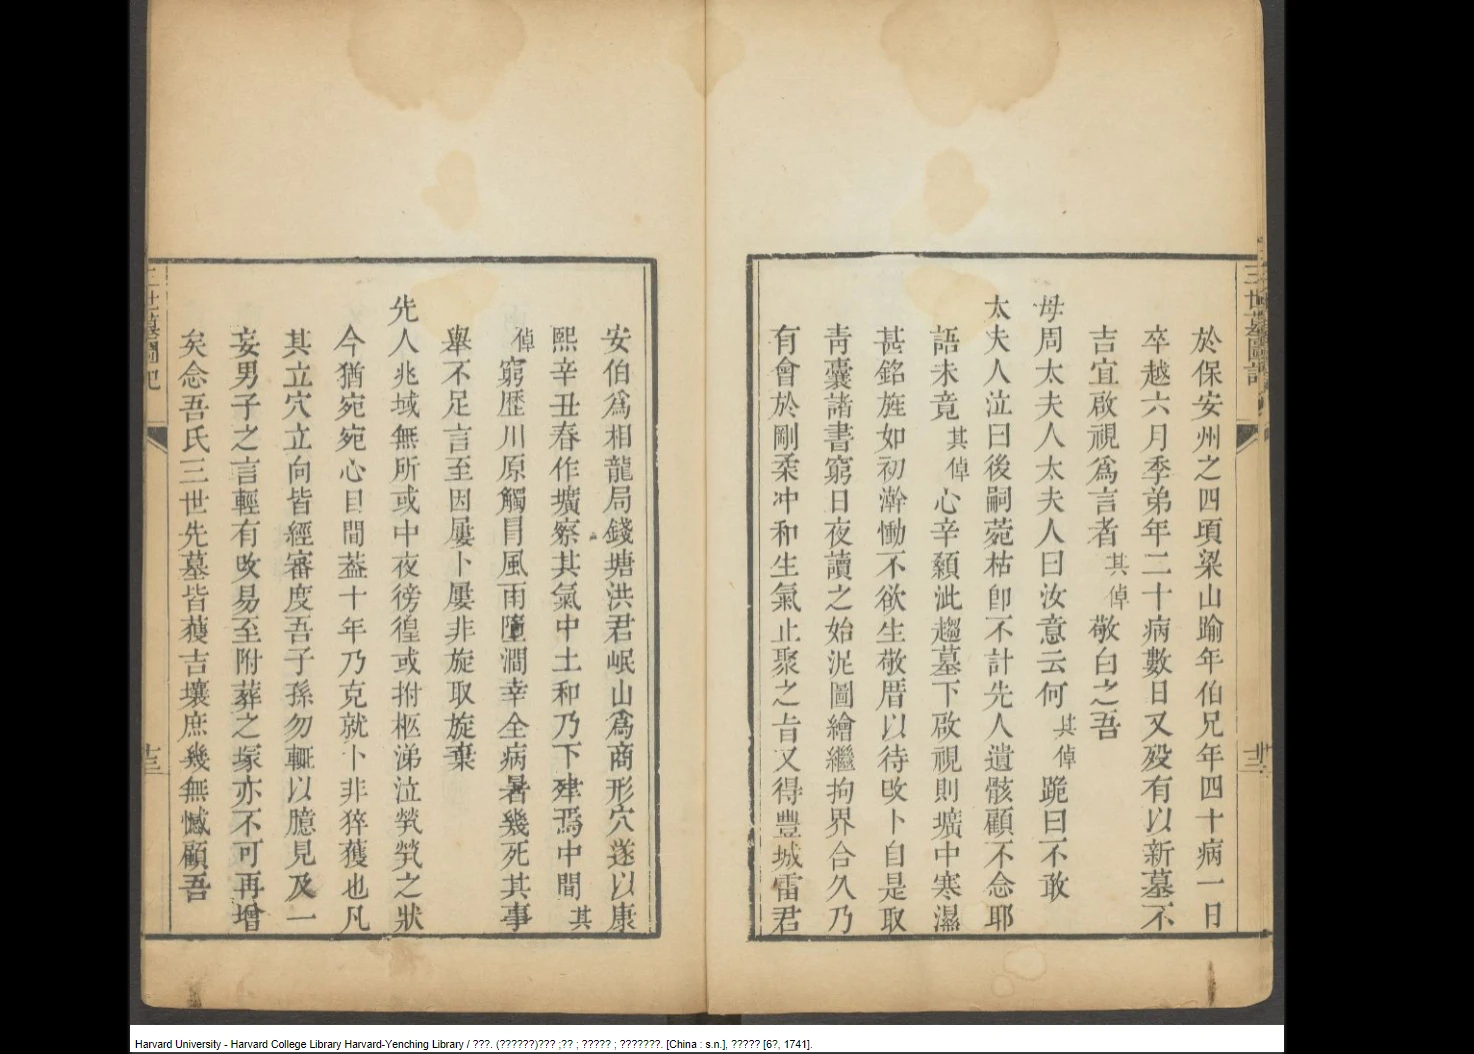 於保安州之四頃梁山踰年伯兄年四十病一日
卒越六月季弟年二十病數日又歿有以新墓不
吉宜啟視爲言者其倬敬白之吾
母周太夫人太夫人曰汝意云何其倬跪曰不敢
太夫人泣曰後嗣菀枯卽不計先人遺骸顧不念耶
語未竟其倬心辛顙泚趨墓下啟視則壙中寒濕
甚銘旌如初澣慟不欲生敬厝以待改卜自是取
靑囊諸書窮日夜讀之始泥圖繪繼拘界合久乃
有會於剛柔冲和生氣止聚之旨又得豐城雷君
三世墓圖記
安伯爲相龍局錢塘洪君岷山爲商形穴遂以康
熙辛丑春作壙察其氣中土和乃下肂焉中間其
倬窮歷川原觸冒風雨墮澗幸全病暑幾死其事
舉不足言至因屢卜屢非旋取旋棄
先人兆域無所或中夜徬徨或拊柩涕泣煢煢之狀
今猶宛宛心目間葢十年乃克就卜非猝獲也凡
其立穴立向皆經審度吾子孫勿輒以臆見及一
妄男子之言輕有改易至附葬之塚亦不可再增
矣念吾氏三世先墓皆蘉吉壤庶幾無憾顧吾
三世墓圖記
Harvard University - Harvard College Library Harvard-Yenching Library / ???. (??????)??? ;?? ; ????? ; ???????. [China : s.n.], ????? [6?, 1741].